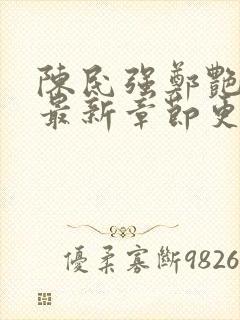 陳民强鄭艷
最新章節更
優柔寡斷9826